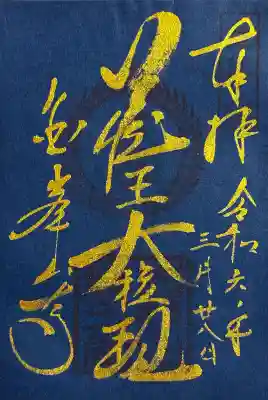 奉拝
令和六年
三月廿八日
蔵王大権現
金峯山寺